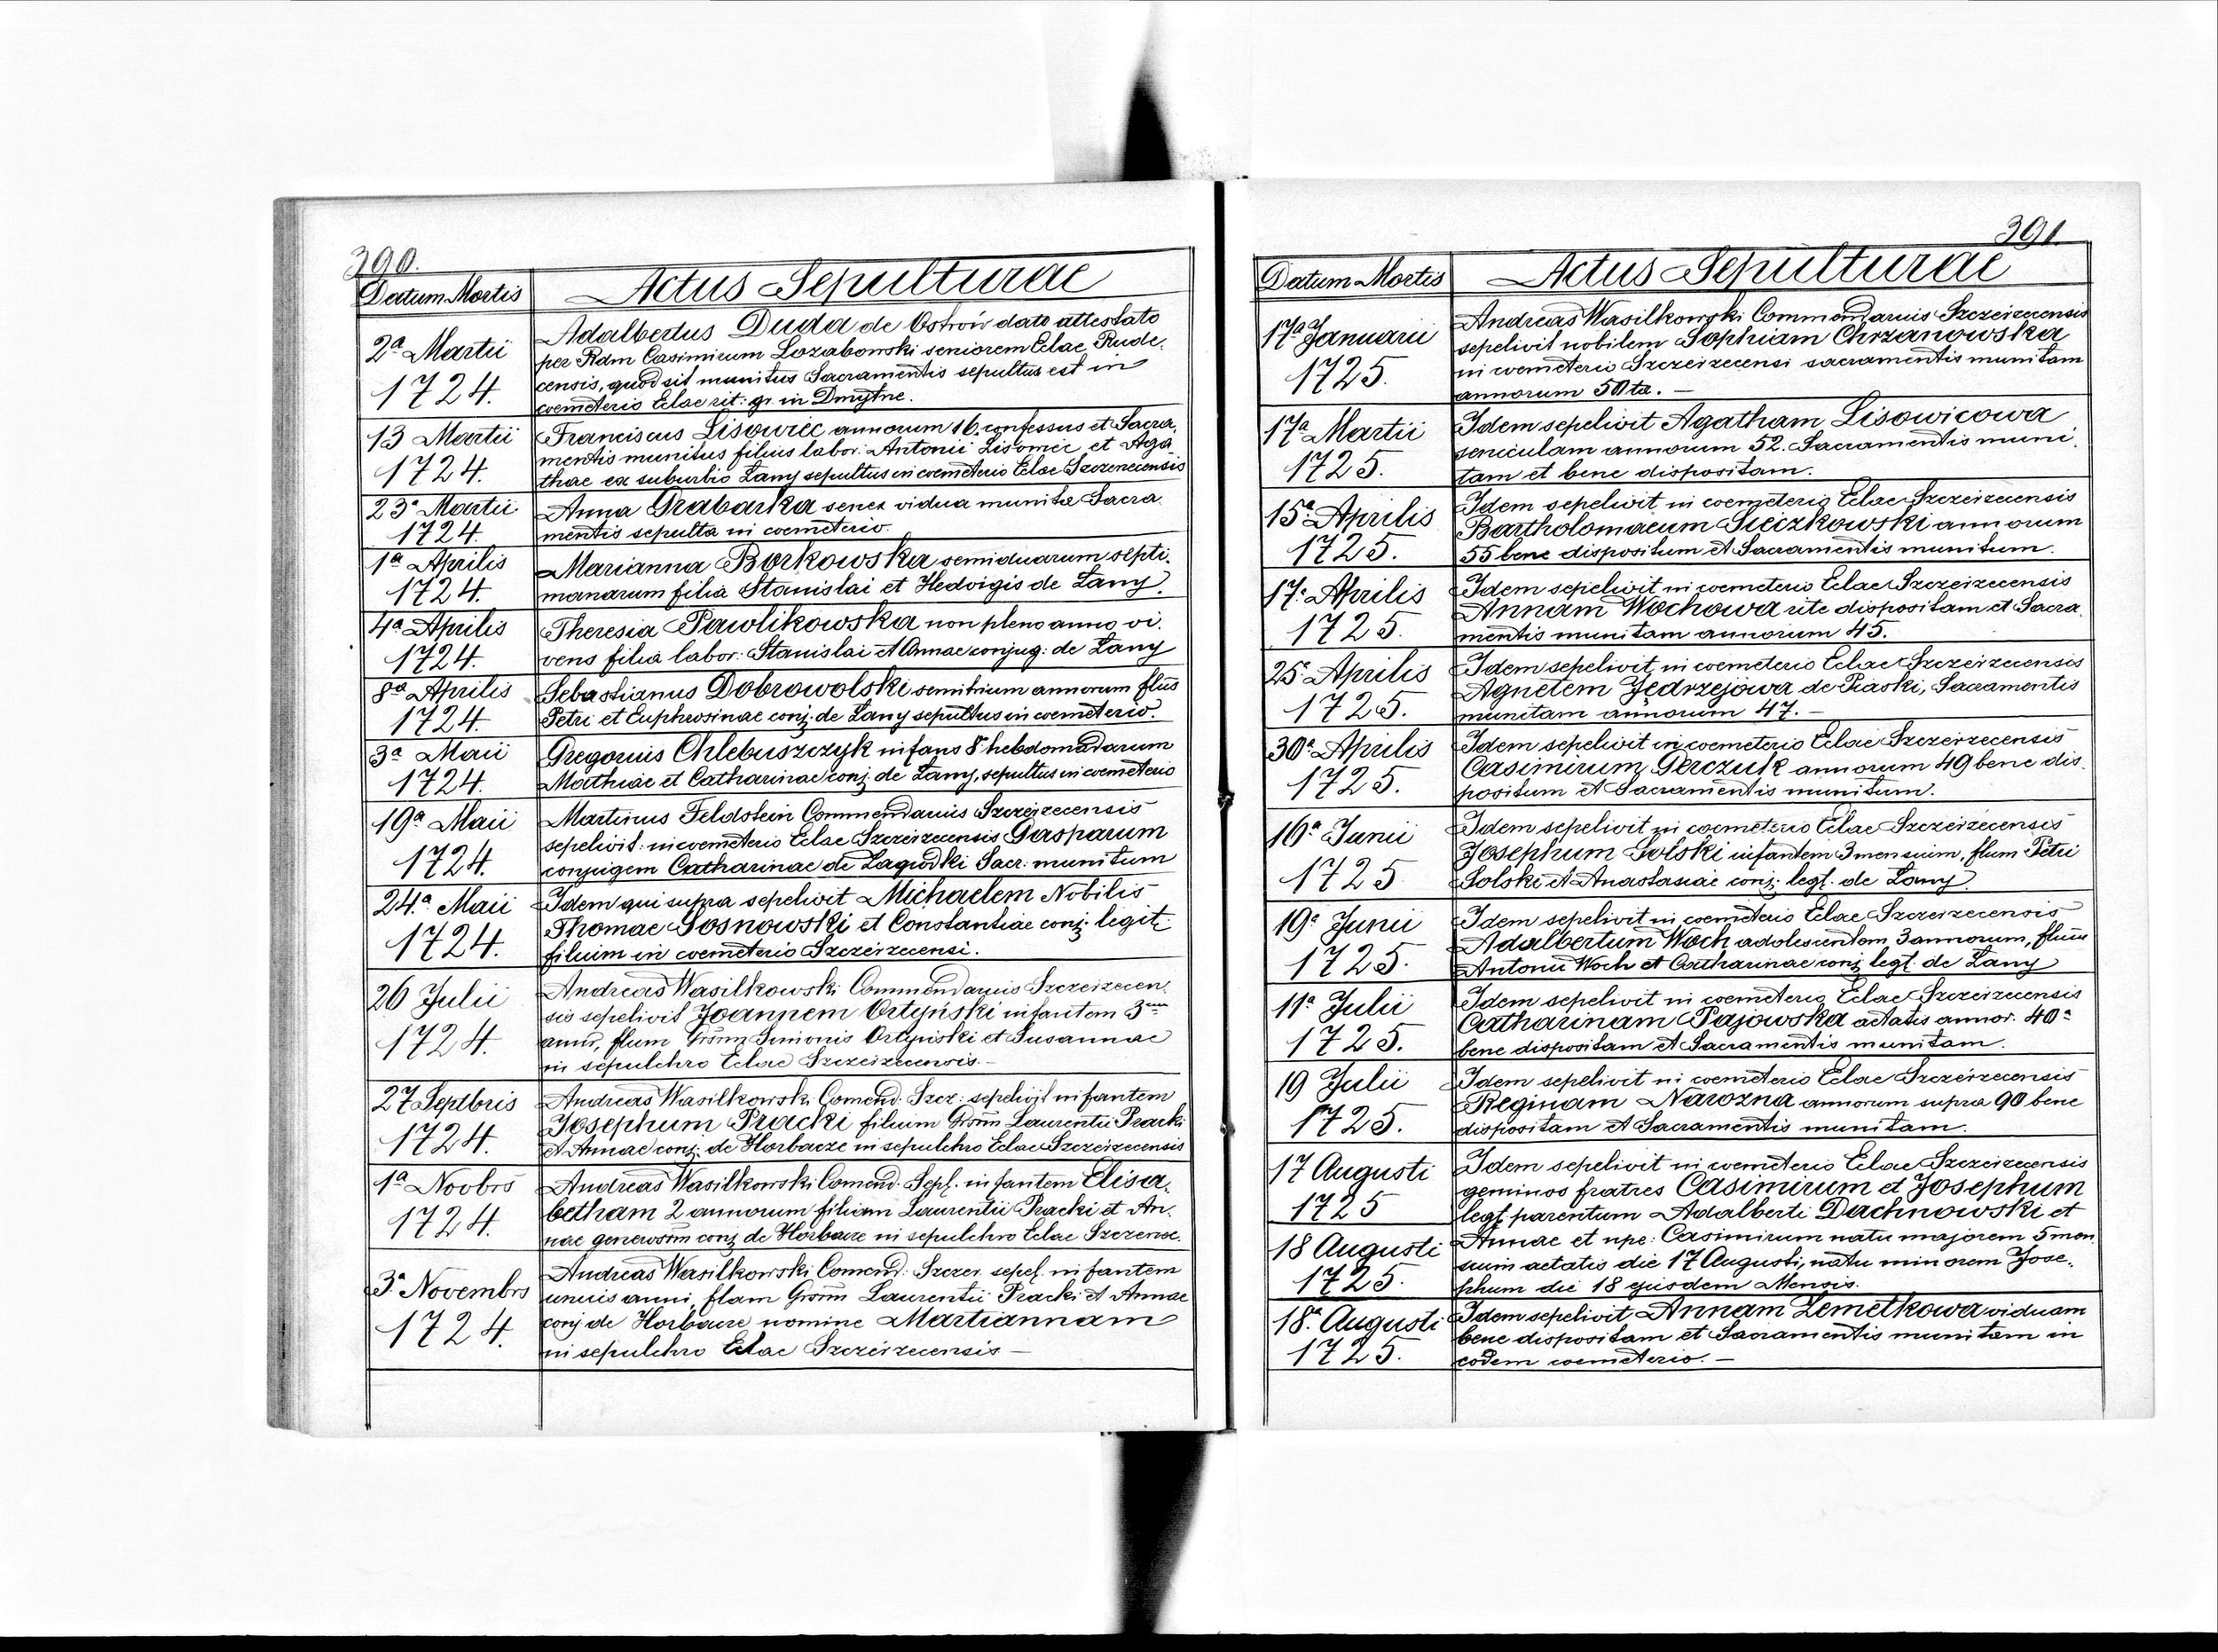 390.
Datum Mortis
Actus Sepulturae
2a Martii
1724.
Adalbertus Duda de Ostrów dato attestato
per Rdm Casimirum Lozabonski seniorem Eclae Rude-
censis, quod sit munitus Sacramentis sepultus est in
coemeterio Eclae rit: gr. in Dmytne.
13 Martii
1724.
Franciscus Lisowiec annorum 16, confessus et Sacra-
mentis munitus filius labor. Antonii Lisowiec et Aga-
thae ex suburbio Łany sepultus in coemeterio Eclae Szczerecensis
23a Martii
1724.
Anna Grabarka senex vidua munita Sacra-
mentis sepulta in coemeterio.
1a Aprilis
1724.
Marianna Borkowska semiduarum septi-
manarum filia Stanislai et Hedvigis de Łany.
4a Aprilis
1724.
Theresia Pawlikowska non pleno anno vi-
vens filia labor: Stanislai et Annae conjug: de Łany
8a Aprilis
1724.
Sebastianus Dobrowolski semitrium annorum flius
Petri et Euphrosinae conj. de Łany sepultus in coemeterio.
3a Maii
1724.
Gregorius Chlebuszczyk infans 8 hebdomadarum
Mathiae et Catharinae conj. de Łany, sepultus in coemeterio
19a Maii
1724.
Martinus Feldstein Commendarius Szczeizecensis
sepelivit: in coemeterio Eclae Szczeizecensis Gasparum
conjugem Catharinae de Łagodki Sacr: munitum
24.a Maii
1724.
Idem qui supra sepelivit Michaelem Nobilis
Thomae Sosnowski et Constantiae conj. legit:
filium in coemeterio Szczeizecensi.
26 Julii
1724.
Andreas Wasilkowski Commendarius Szczeizecen-
sis sepelivit Joannem Ortyński infantem 3um
anni, flium Gsrm Simonis Ortyński et Susannae
in sepulchro Eclae Szczeizecensis.-
27 Septbris
1724.
Andreas Wasilkowski Comend. Szcz: sepelivit infantem
Josephum Pracki filium Grsm Laurentii Pracki
et Annae conj: de Horbacze in sepulchro Eclae Szczeizecensis
1a Novbrs
1724.
Andreas Wasilkowski Comend. Sepl. infantem Elisa-
betham 2 annorum filiam Laurentii Pracki et An-
nae generosrm conj. de Horbacze in sepulchro Eclae Szczerec.
3a Novembrs
1724.
Andreas Wasilkowski Comend: Szczer. sepel. infantem
unuis anni, flam Grsrm Laurentii Pracki et Annae
conj de Horbacze nomine Martiannam
in sepulchro Eclae Szczeizecensis —
391.
Datum Mortis
Actus Sepulturae
17a Januarii
1725.
Andreas Wasilkowski Commendarius Szczeizecensis
sepelivit nobilem Sophiam Chrzanowska
in coemeterio Szczeizecensi sacramentis munitam
annorum 50ta. —
17a Martii
1725.
Idem sepelivit Agatham Lisowicowa
seniculam annorum 52. Sacramentis muni-
tam et bene dispositam.
15a Aprilis
1725.
Idem sepelivit in coemeterio Eclae Szczeizecensis
Bartholomaeum Sieczkowski annorum
55 bene dispositum et Sacramentis munitum.
17a Aprilis
1725.
Idem sepelivit in coemeterio Eclae Szczeizecensis
Annam Wochowa rite dispositam et Sacra-
mentis munitam annorum 45.
25a Aprilis
1725.
Idem sepelivit in coemeterio Eclae Szczeizecensis
Agnetem Jedrzejowa de Piaski, Sacramentis
munitam annorum 47.—
30a Aprilis
1725.
Idem sepelivit in coemeterio Eclae Szczeizecensis
Casimirum Gerczuk annorum 49 bene dis-
positum et Sacramentis munitum.
16a Junii
1725
Idem sepelivit in coemeterio Eclae Szczeizecensis
Josephum Solski infantem 3 mensium, flum Petri
Solski et Anastasiae conj: legt. de Łany.
19a Junii
1725.
Idem sepelivit in coemeterio Eclae Szczeizecensis
Adalbertum Woch adolescentem 3 annorum, flium
Antonii Woch et Catharinae conj. legt. de Łany
11a Julii
1725.
Idem sepelivit in coemeterio Eclae Szczeizecensis
Catharinam Pajowska aetatis annor. 40a
bene dispositam et Sacramentis munitam.
19 Julii
1725.
Idem sepelivit in coemeterio Eclae Szczeizecensis
Reginam Narozna annorum supra 90 bene
dispositam et Sacramentis munitam.
17 Augusti
1725
Idem sepelivit in coemeterio Eclae Szczeizecensis
geminos fratres Casimirum et Josephum
legt. parentum Adalberti Dachnowski et
18 Augusti
1725.
Annae et npe: Casimirum natu majorem 5 men-
sium aetatis die 17 Augusti, natu minorem Jose-
phum die 18 ejusdem Mensis.
18.a Augusti
1725.
Idem sepelivit Annam Zemetkowa viduam
bene dispositam et Sacramentis munitam in
eodem coemeterio.—